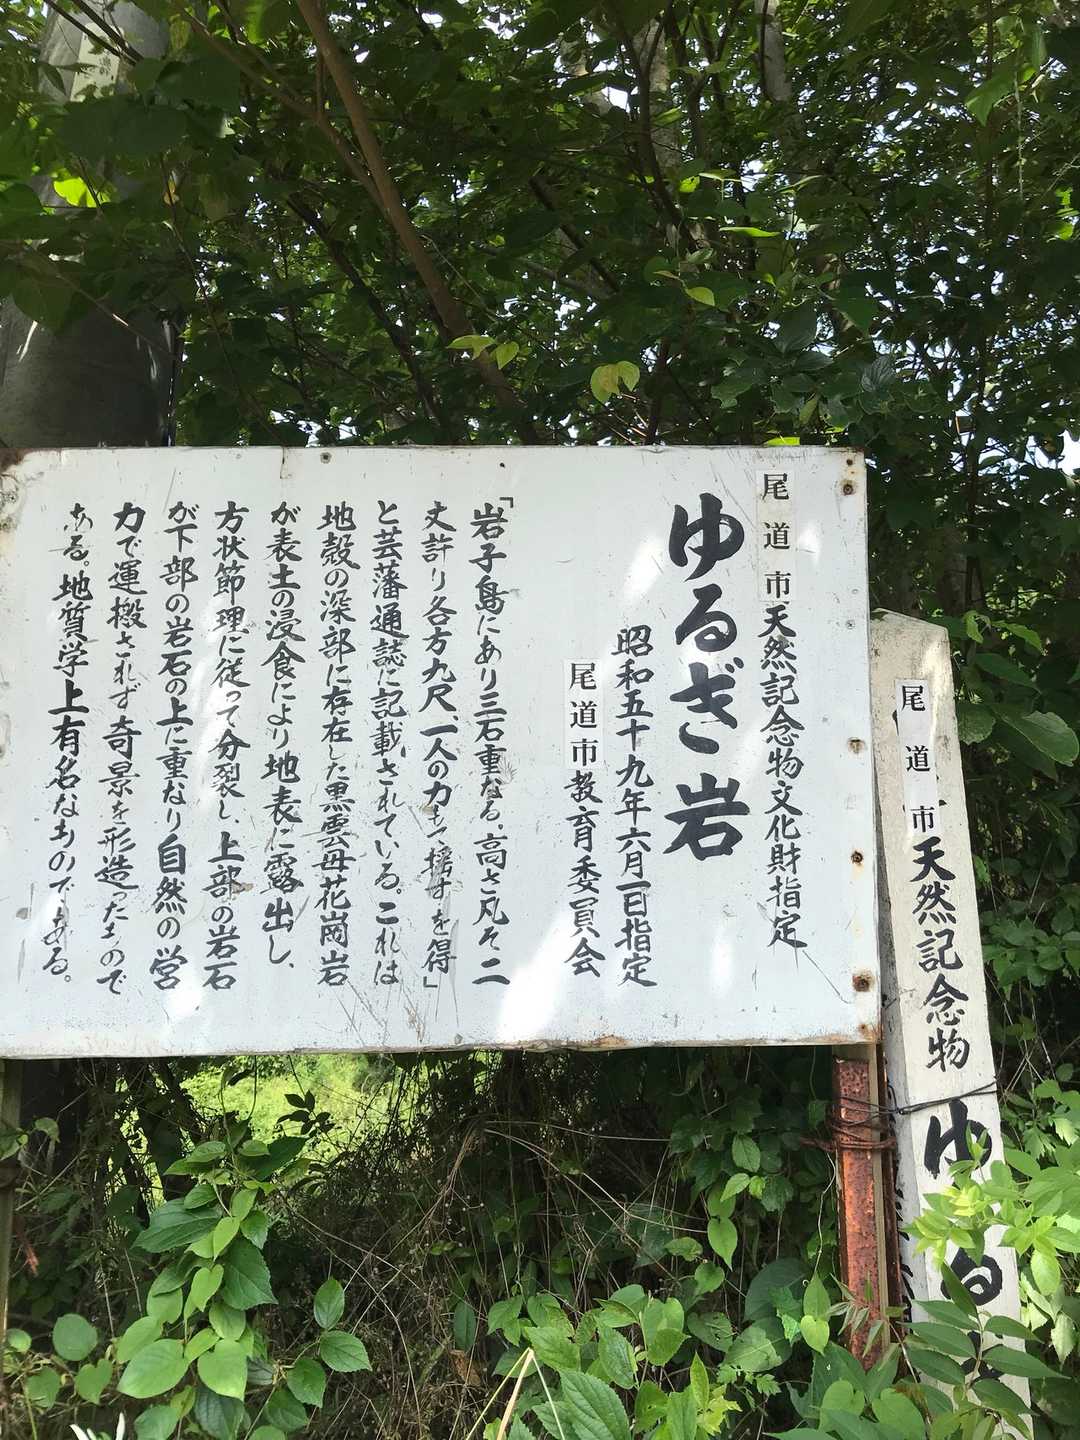 尾道市天然記念物文化財指定
ゆるぎ岩
昭和五十九年六月一日指定
尾道市教育委員会
「岩子島にあり三石重なる、高さ凡そ二
丈許り各方九尺、一人の力もて揺すを得」
と芸藩通誌に記載されている。これは
地殻の深部に存在した黒雲母花崗岩
が表土の浸食により地表に露出し、
方状節理に従って分裂し、上部の岩石
が下部の岩石の上に重なり自然の営
力で運搬されず奇景を形造ったもので
ある。地質学上有名なものである。
尾道市天然記念物 ゆる